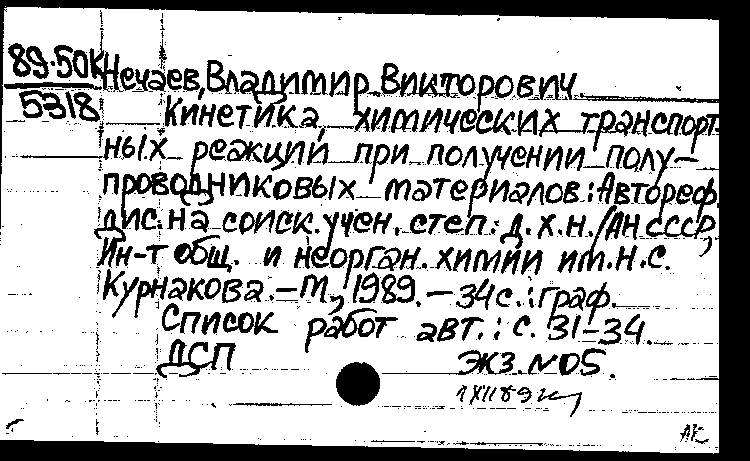 89-50К Нечаев, Владимир Викторович
5318 Кинетика химических транспорт-
ных реакций при получении полу-
проводниковых материалов: Автореф.
дис. на соиск. учен. степ. д.х.н./АН СССР,
Ин-т общ. и неорган. химии им. Н.С.
Курнакова. – М., 1989. – 34 с.: граф.
Список работ авт.: с. 31–34.
ДСП ЭКЗ. №05.
АК